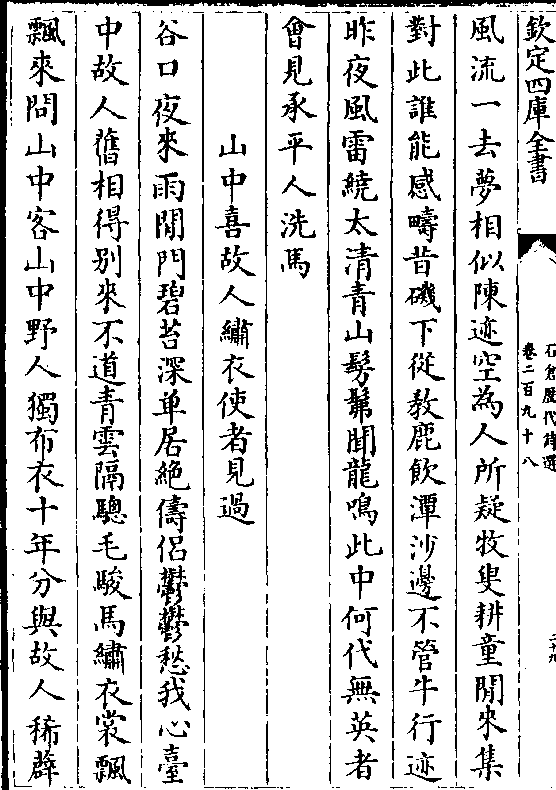 欽定四庫全書
石倉歷代詩選
卷二百九十八
風流一去夢相似陳迹空為人所疑牧叟耕童閒來集
對此誰能感疇昔磯下從教鹿飲潭沙邊不管牛行迹
昨夜風雷繞太清青山髣髴聞龍鳴此中何代無英者
會見承平人洗馬
山中喜故人繡衣使者見過
谷口夜來雨閉門碧苔深单居絶儔侣鬱鬱愁我心臺
中故人舊相得别來不道青雲隔驄毛駿馬繡衣裳飄
飄來問山中客山中野人獨布衣十年分與故人稀薜